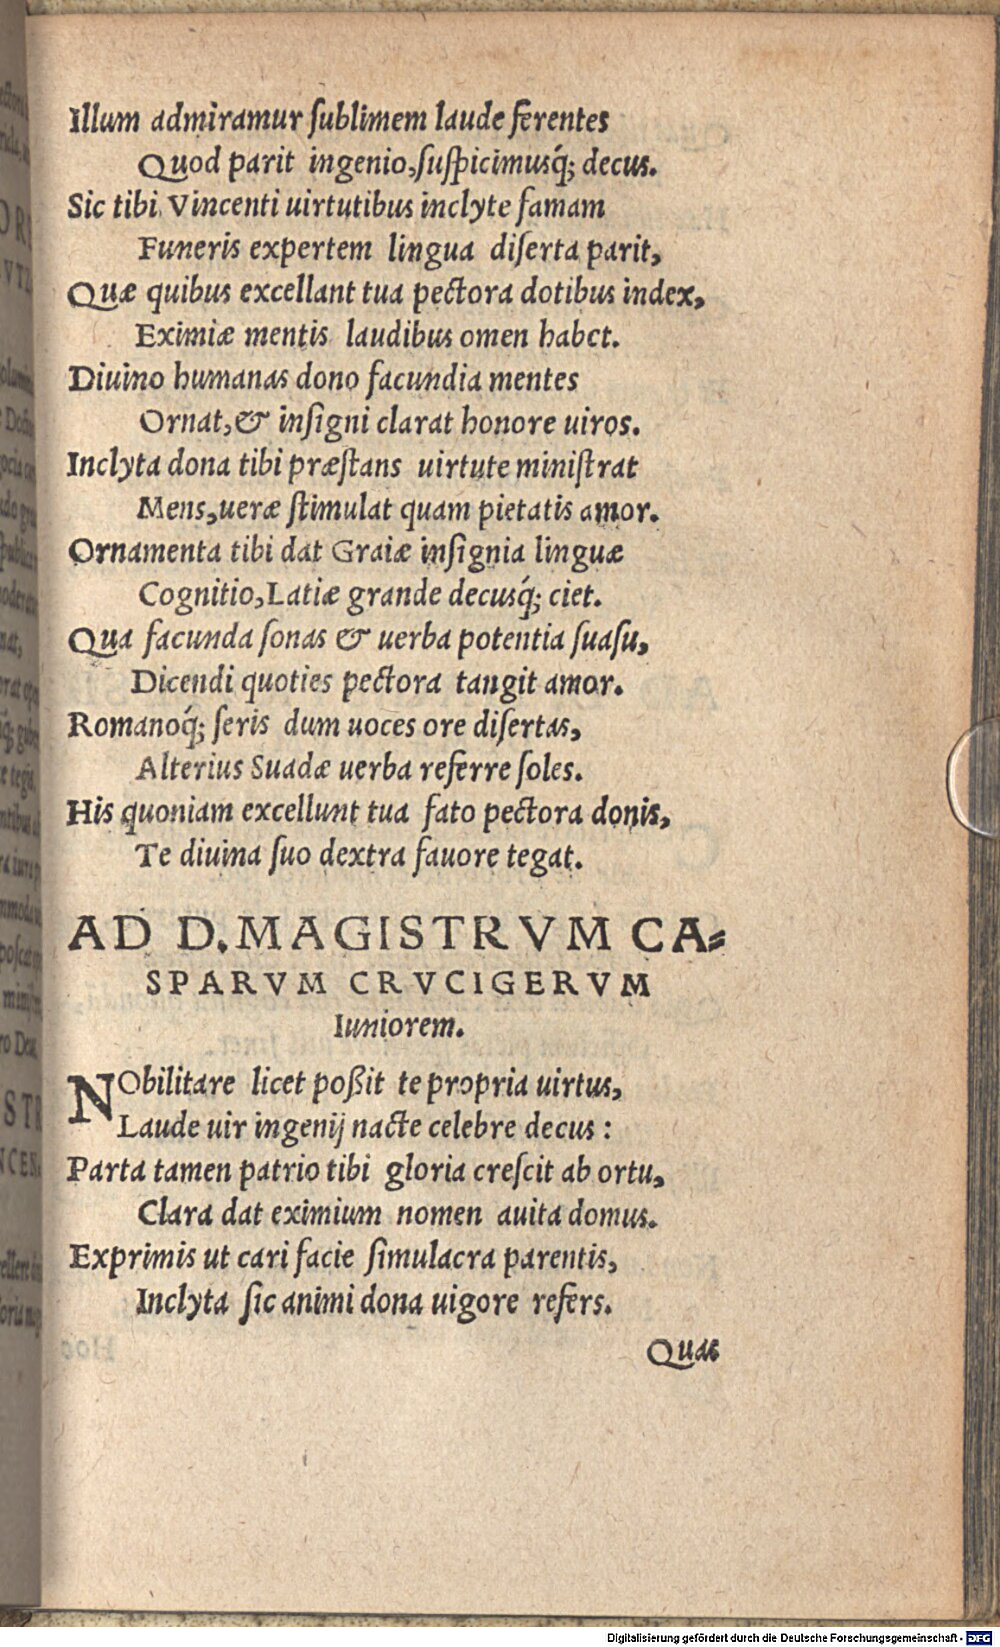 Illum admiramur ſublimem laude ferentes
Quod parit ingenio, ſuſpicimusq́; decus.
Sic tibi Vincenti uirtutibus inclyte famam
Funeris expertem lingua diſerta parit,
Quæ quibus excellant tua pectora dotibus index,
Eximiæ mentis laudibus omen habet.
Diuino humanas dono facundia mentes
Ornat, & inſigni clarat honore uiros.
Inclyta dona tibi præſtans uirtute miniſtrat
Mens, ueræ ſtimulat quam pietatis amor.
Ornamenta tibi dat Graiæ inſignia linguæ
Cognitio, Latiæ grande decusq́; ciet.
Qua facunda ſonas & uerba potentia ſuaſu,
Dicendi quoties pectora tangit amor.
Romanoq́; ſeris dum uoces ore diſertas,
Alterius Suadæ uerba referre ſoles.
His quoniam excellunt tua fato pectora donis,
Te diuina ſuo dextra fauore tegat.
AD D. MAGISTRVM CA⸗
SPARVM CRVCIGERVM
Iuniorem.
NObilitare licet poßit te propria uirtus,
Laude uir ingenij nacte celebre decus :
Parta tamen patrio tibi gloria creſcit ab ortu,
Clara dat eximium nomen auita domus.
Exprimis ut cari facie ſimulacra parentis,
Inclyta ſic animi dona uigore refers.
Quas
Digitalisierung gefördert durch die Deutsche Forschungsgemeinschaft - DFG